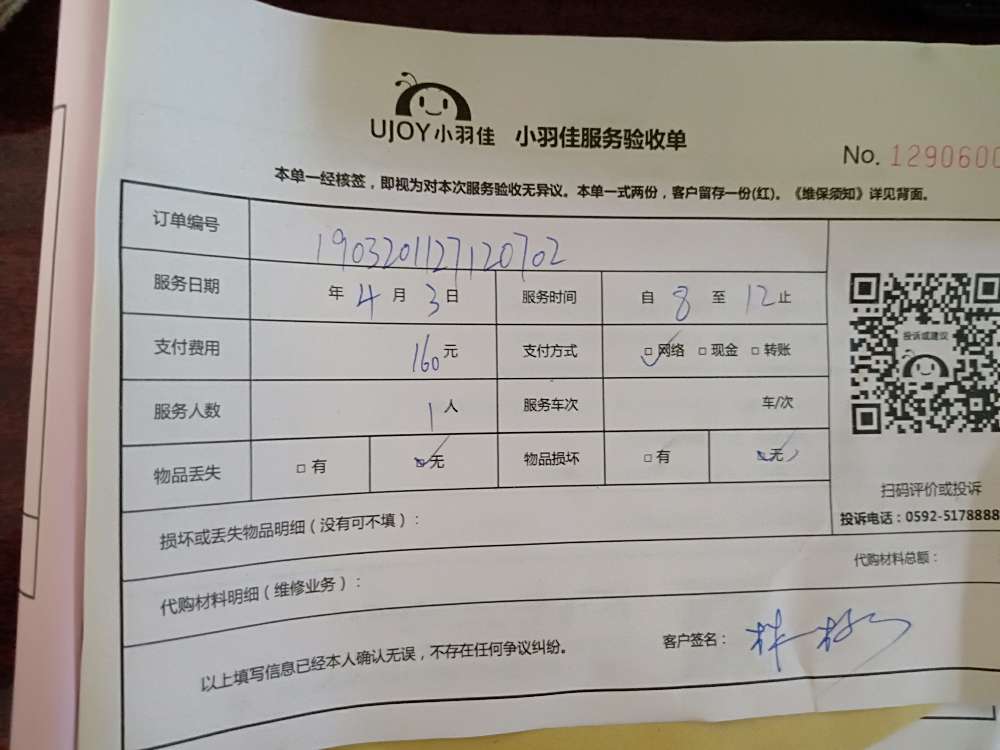 UJOY小羽佳 小羽佳服务验收单
No. 1290600
本单一经核签，即视为对本次服务验收无异议。本单一式两份，客户留存一份(红)。《维保须知》详见背面。
订单编号 1903201127120702
服务日期 年 4 月 3 日 服务时间 自 8 至 12 止
支付费用 160 元 支付方式 ☑网络 □现金 □转账
服务人数 1 人 服务车次 车/次
物品丢失 □有 ☑无 物品损坏 □有 ☑无
投诉或建议
扫码评价或投诉
投诉电话：0592-5178888
损坏或丢失物品明细（没有可不填）：
代购材料明细（维修业务）： 代购材料总额：
以上填写信息已经本人确认无误，不存在任何争议纠纷。 客户签名：